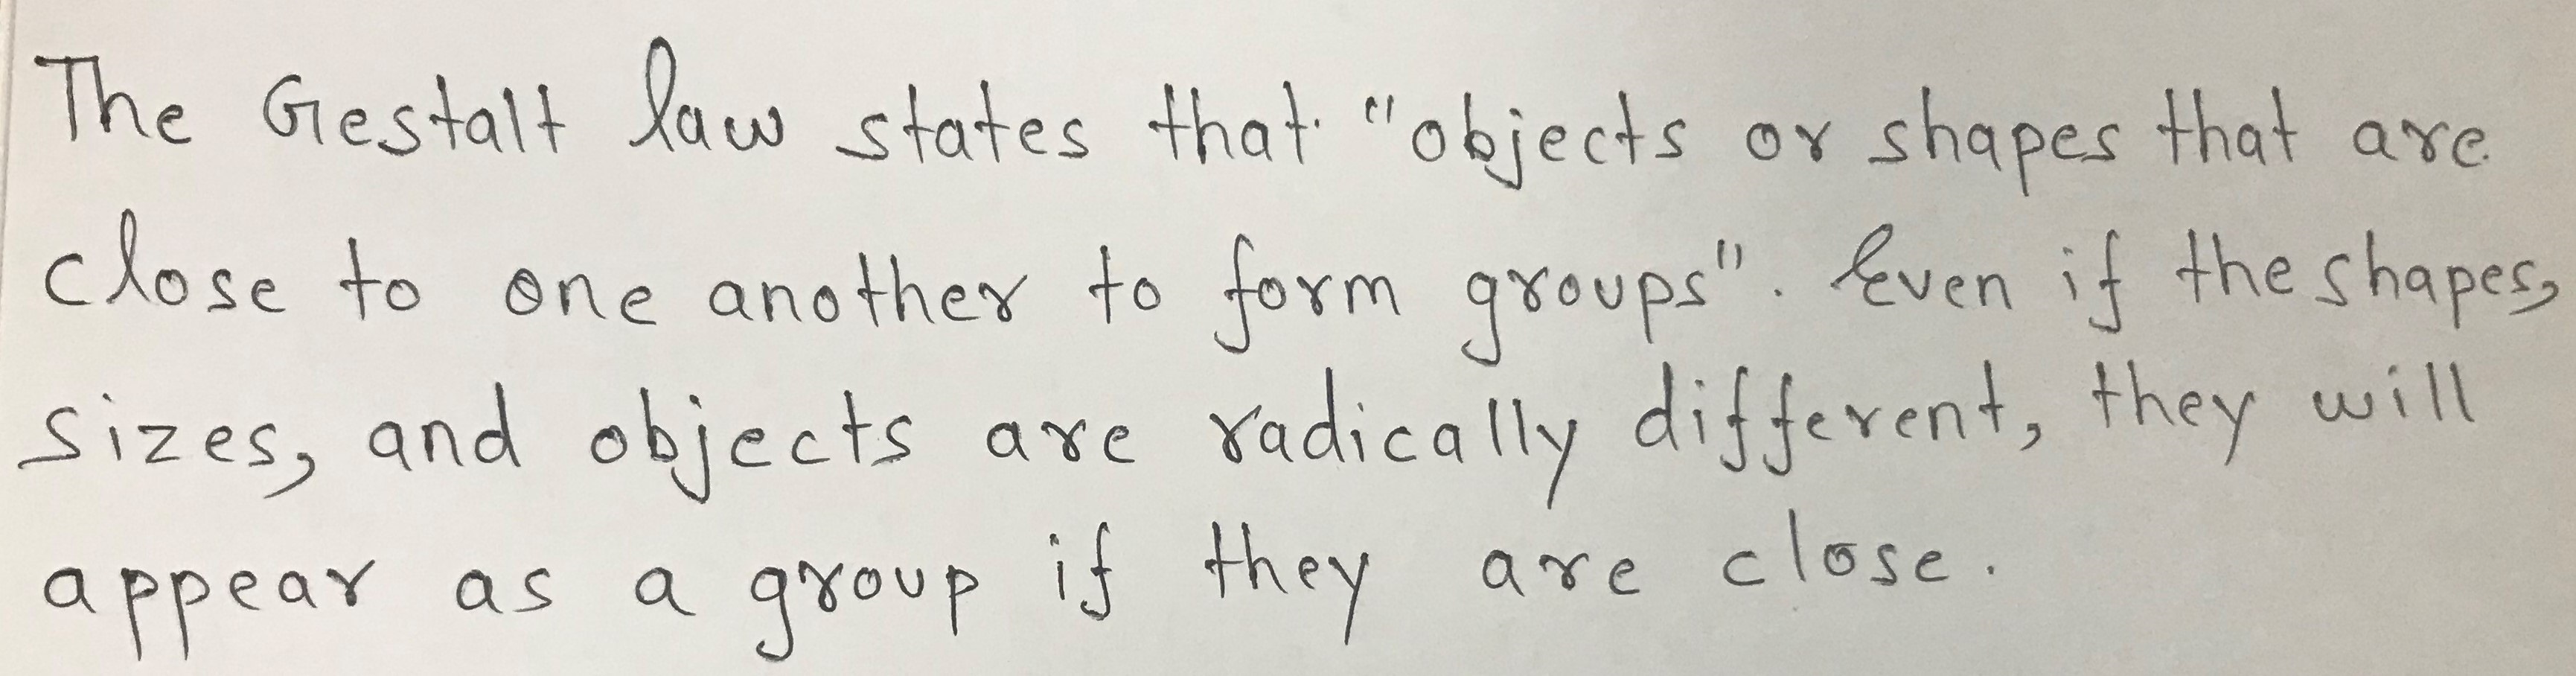 The Gestalt law states that "objects or shapes that are
close to one another to form groups". Even if the shapes,
sizes, and objects are radically different, they will
appear as a group if they are close.